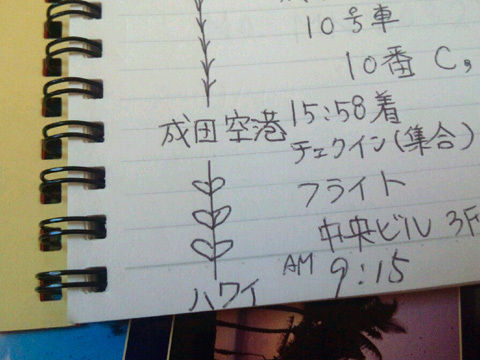 10号車
10番 C,
成田空港 15:58着
チェクイン(集合)
フライト
中央ビル 3F
ハワイ AM 9:15